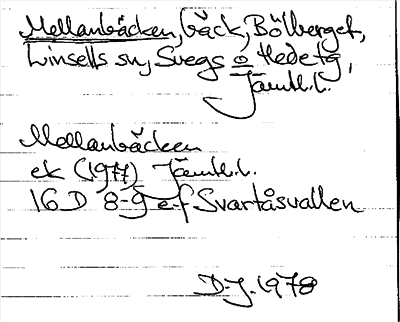 Mellanbäcken, bäck, Bölberget,
Linsells sn, Svegs o Hede tg,
Jämtl.l.
Mellanbäcken
ek (1977) Jämtl.l.
16 D 8-9 e-f Svartåsvallen
D-J. 1978